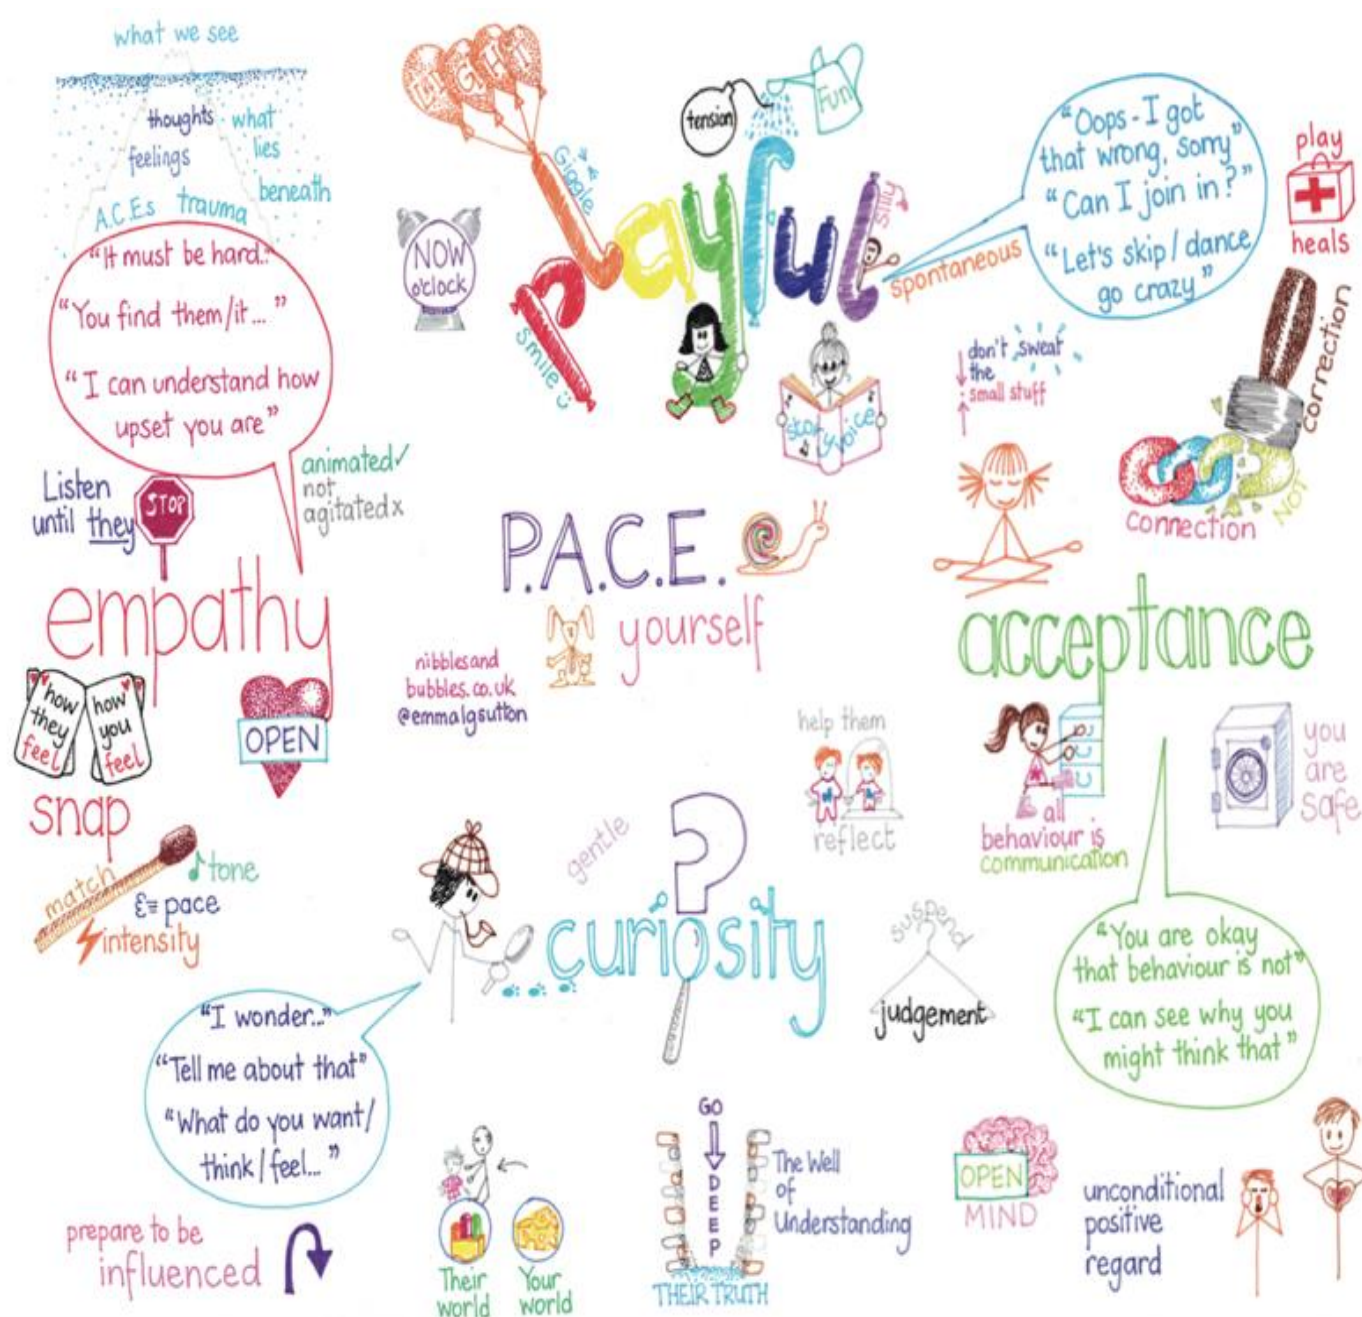 what we see
thoughts
feelings
what
lies
beneath
A.C.Es trauma
"It must be hard.."
"You find them/it..."
"I can understand how
upset you are"
Listen
until they
STOP
animated✓
not
agitated x
empathy
how
they
feel
how
you
feel
OPEN
snap
match
tone
pace
intensity
LIGHT
tension
Fun
Giggle
silly
playful
smile
NOW
o'clock
story voice
spontaneous
"Oops - I got
that wrong, sorry"
"Can I join in?"
"Let's skip/dance
go crazy"
play
heals
don't sweat
the
small stuff
connection
NOT
correction
P.A.C.E.
yourself
nibblesand
bubbles.co.uk
@emmalgsutton
acceptance
all
behaviour is
communication
you
are
safe
"You are okay
that behaviour is not"
"I can see why you
might think that"
help them
reflect
gentle
?
curiosity
suspend
judgement
"I wonder.."
"Tell me about that"
"What do you want/
think/feel..."
prepare to be
influenced
Their
world
Your
world
GO
DEEP
The Well
of
Understanding
THEIR TRUTH
OPEN
MIND
unconditional
positive
regard